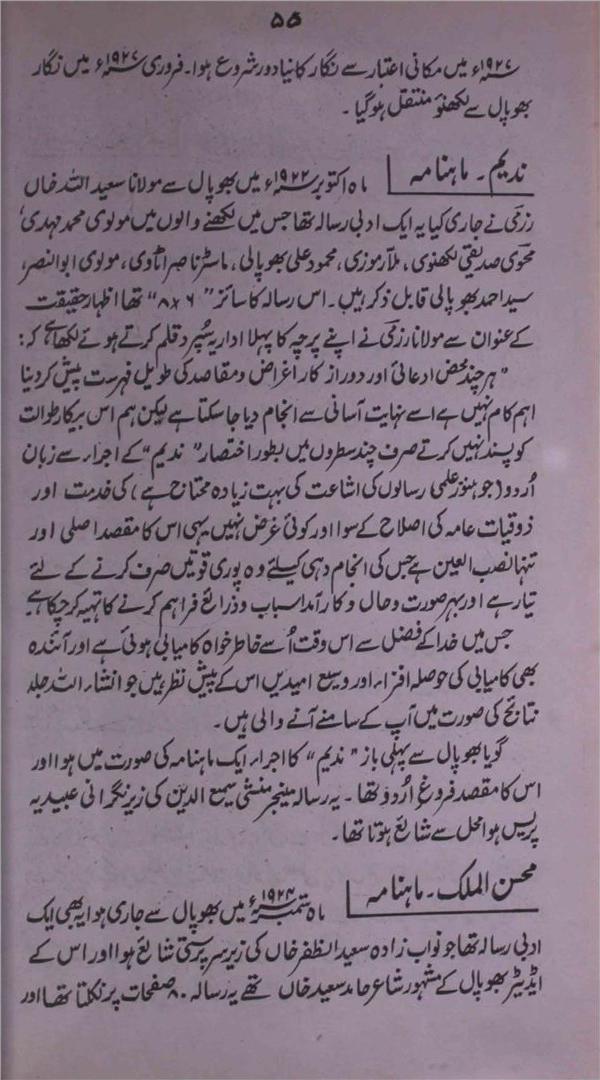 ۵۵
۱۹۲۷ء میں مکانی اعتبار سے نگار کا نیا دور شروع ہوا۔ فروری ۱۹۲۷ء میں نگار
بھوپال سے لکھنؤ منتقل ہوگیا۔
ندیم۔ ماہنامہ
ماہ اکتوبر ۱۹۲۲ء میں بھوپال سے مولانا سعید اللہ خاں
رزمی نے جاری کیا یہ ایک ادبی رسالہ تھا جس میں لکھنے والوں میں مولوی محمد مہدی،
محوی صدیقی لکھنوی، ملا رموزی، محمود علی بھوپالی، ماسٹر ناصر اٹاوی، مولوی ابوالنصر،
سید احمد بھوپالی قابل ذکر ہیں۔ اس رسالہ کا سائز "۶×۸" تھا اظہار حقیقت
کے عنوان سے مولانا رزمی نے اپنے پرچہ کا پہلا اداریہ سُپرد قلم کرتے ہوئے لکھا ہے کہ:
"ہر چند محض ادعائی اور دوراز کار اغراض و مقاصد کی طویل فہرست پیش کر دینا
اہم کام نہیں ہے اسے نہایت آسانی سے انجام دیا جا سکتا ہے لیکن ہم اس بیکار طوالت
کو پسند نہیں کرتے صرف چند سطروں میں بطور اختصار "ندیم" کے اجراء سے زبان
اُردو (جو ہنوز علمی رسالوں کی اشاعت کی بہت زیادہ محتاج ہے) کی خدمت اور
ذوقیات عامہ کی اصلاح کے سوا اور کوئی غرض نہیں یہی اس کا مقصد اصلی اور
تنہا نصب العین ہے جس کی انجام دہی کیلئے وہ پوری قوتیں صرف کرنے کے لئے
تیار ہے اور بہر صورت و حال و کار آمد اسباب و ذرائع فراہم کرنے کا تہیہ کر چکا ہے
جس میں خدا کے فضل سے اس وقت اُسے خاطر خواہ کامیابی ہوئی ہے اور آئندہ
بھی کامیابی کی حوصلہ افزاء اور وسیع امیدیں اس کے پیش نظر ہیں جو انشاء اللہ جلد
نتائج کی صورت میں آپ کے سامنے آنے والی ہیں۔
گویا بھوپال سے پہلی بار "ندیم" کا اجراء ایک ماہنامہ کی صورت میں ہوا اور
اس کا مقصد فروغِ اُردو تھا۔ یہ رسالہ مینجر منشی سمیع الدین کی زیر نگرانی عبیدیہ
پریس ہوا محل سے شائع ہوتا تھا۔
محسن الملک۔ ماہنامہ
ماہ ستمبر ۱۹۲۴ء میں بھوپال سے جاری ہوا یہ بھی ایک
ادبی رسالہ تھا جو نواب زادہ سعید الظفر خاں کی زیر سرپرستی شائع ہوا اور اس کے
ایڈیٹر بھوپال کے مشہور شاعر حامد سعید خاں تھے یہ رسالہ ۸۰ صفحات پر نکلتا تھا اور